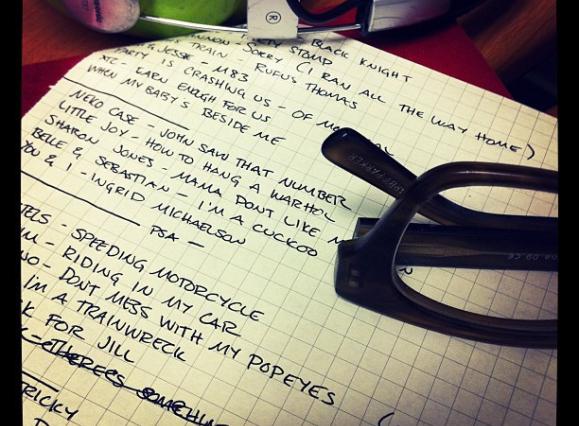 BLACK KNIGHT
STOMP
- SORRY (I RAN ALL THE WAY HOME)
TRAIN - RUFUS THOMAS
& JESSE - M83
PARTY IS CRASHING US - OF
XTC - EARN ENOUGH FOR US
WHEN MY BABY'S BESIDE ME
NEKO CASE - JOHN SAW THAT NUMBER
LITTLE JOY - HOW TO HANG A WARHOL
SHARON JONES - MAMA DON'T LIKE
BELLE & SEBASTIAN - I'M A CUCKOO
YOU & I - INGRID MICHAELSON
PSA -
- SPEEDING MOTORCYCLE
- RIDING IN MY CAR
- DONT MESS WITH MY POPEYES
I'M A TRAINWRECK
FOR JILL
®